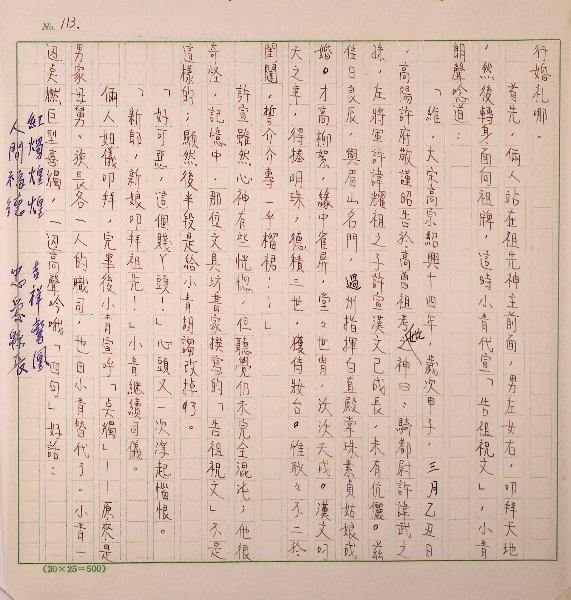 No. 113.
行婚礼哪。
首先，倆人站在祖先神主前面，男左女右，叩拜天地
，然後轉身面向祖牌，這時小青代宣「告祖祝文」，小青
朗聲唸道：
「維，大宋高宗紹興十四年，歲次甲子，三月乙丑日
，高陽許府敬謹昭告於高曾祖考妣之神曰：騎都尉許諱武之
孫，左將軍許諱耀祖之子許宣漢文已成長，未有伉儷。茲
佳日良辰，與眉山名門，過州指揮白直殿掌珠素貞姑娘成
婚。才高柳絮，緣中雀屏，堂々世冑，沃沃天成。漢文叼
天之幸，得捧明珠，德積三世，獲侍妝台。惟耿々不二於
閨闥，誓介介專一乎榴裙：：」
許宣雖然心神有些恍惚，但聽覺仍未完全混沌；他很
奇怪，記憶中，那位文具坊書家撰寫的「告祖祝文」不是
這樣的；顯然後半段是給小青胡謅改掉了。
「好可惡，這個賤丫頭！」心頭又一次浮起惱恨。
「新郎，新娘叩拜祖先！」小青繼續司儀。
倆人如儀叩拜，完畢後小青宣呼「点燭」——原來是
男家母舅、族長各一人的職司，也由小青替代了。小青一
边点燃巨型喜燭，一边高聲吟哦「四句」好話：
紅燭煌煌 吉祥鸞凰
人間福德 忠孝綿長
(20×25=500)